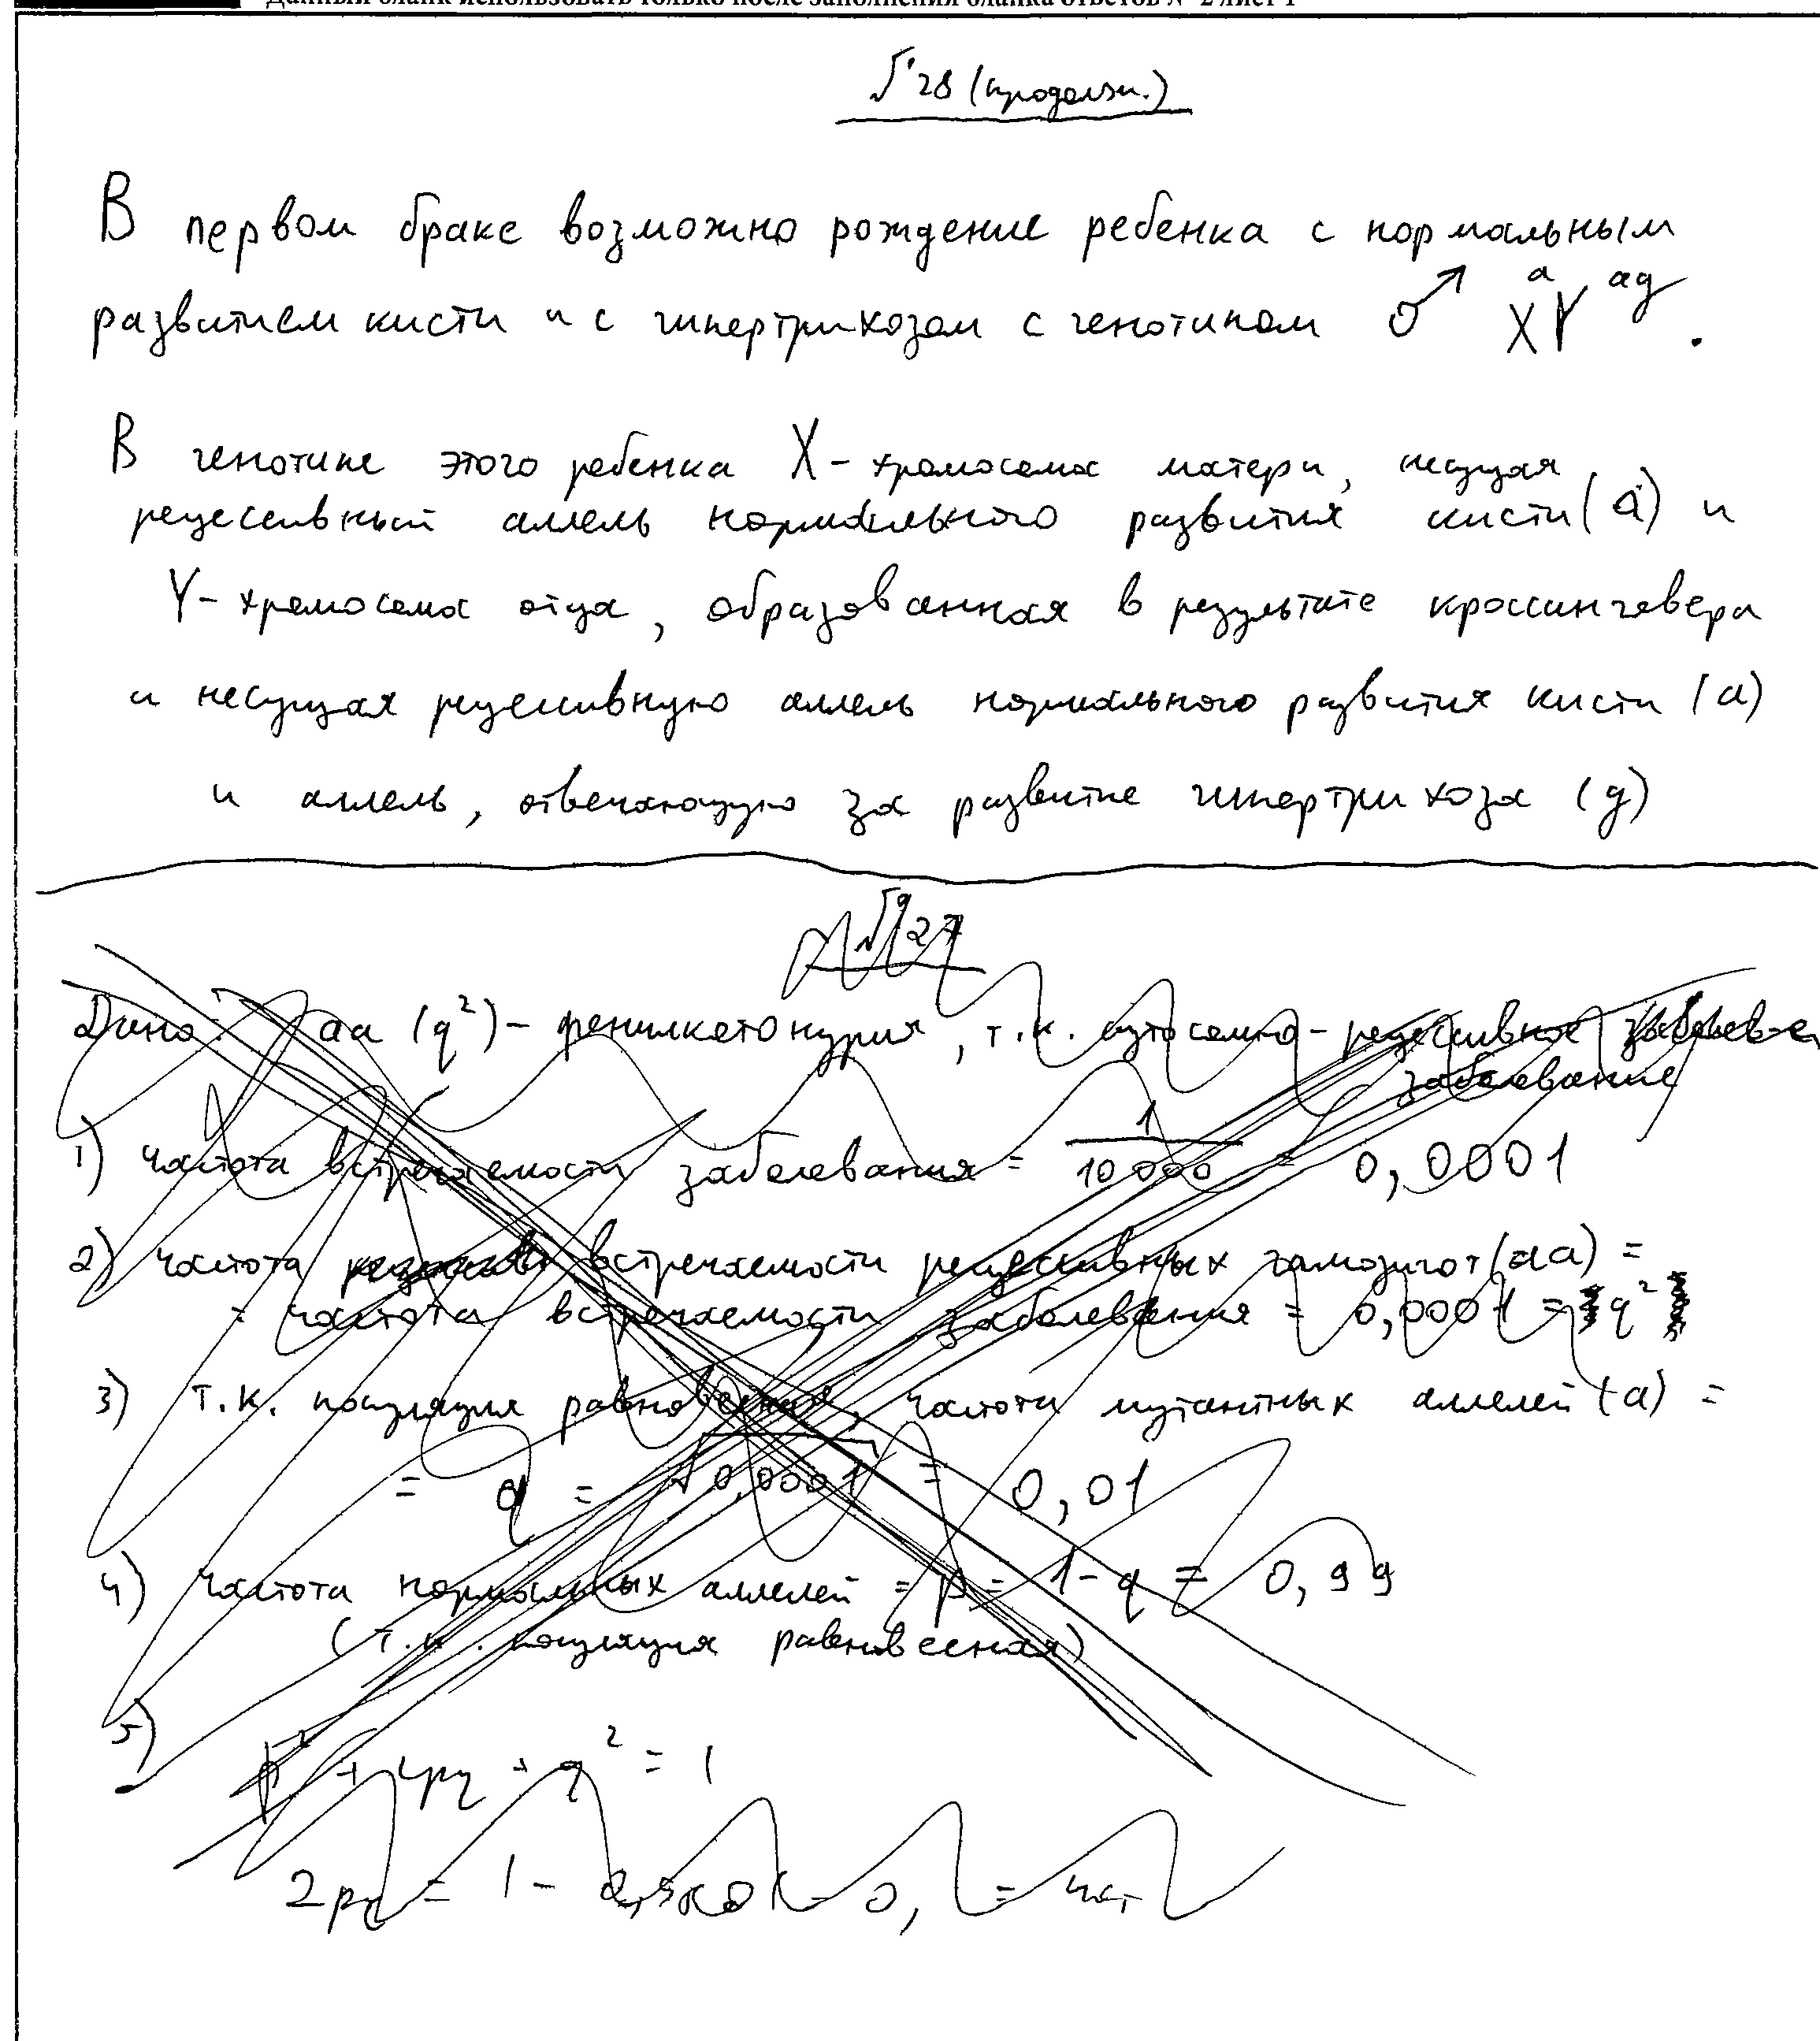 Данный бланк использовать только после заполнения бланка ответов № 2 лист 1
№ 28 (продолж.)
В первом браке возможно рождение ребенка с нормальным
развитием кисти и с гипертрихозом с генотипом ♂ XᵃYᵃᵍ.
В генотипе этого ребенка X-хромосома матери, несущая
рецессивный аллель нормального развития кисти (a) и
Y-хромосома отца, образованная в результате кроссинговера
и несущая рецессивную аллель нормального развития кисти (a)
и аллель, отвечающую за развитие гипертрихоза (g)
№ 27
Дано: aa (q²) - фенилкетонурия, т.к. аутосомно-рецессивное
заболевание
1) частота встречаемости заболевания = 1/10 000 = 0,0001
2) частота встречаемости рецессивных гомозигот (aa) =
= частота встречаемости заболевания = 0,0001 = q²
3) т.к. популяция равновесная, частота мутантных аллелей (a) =
= q = √0,0001 = 0,01
4) частота нормальных аллелей = p = 1-q = 0,99
(т.к. популяция равновесная)
5)
p² + 2pq + q² = 1
2pq = 1 -